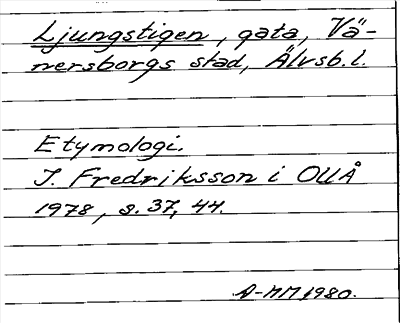 Ljungstigen, gata, Vä-
nersborgs stad, Älvsb.l.
Etymologi.
I. Fredriksson i OUÅ
1978, s. 37, 44.
A-MM 1980.